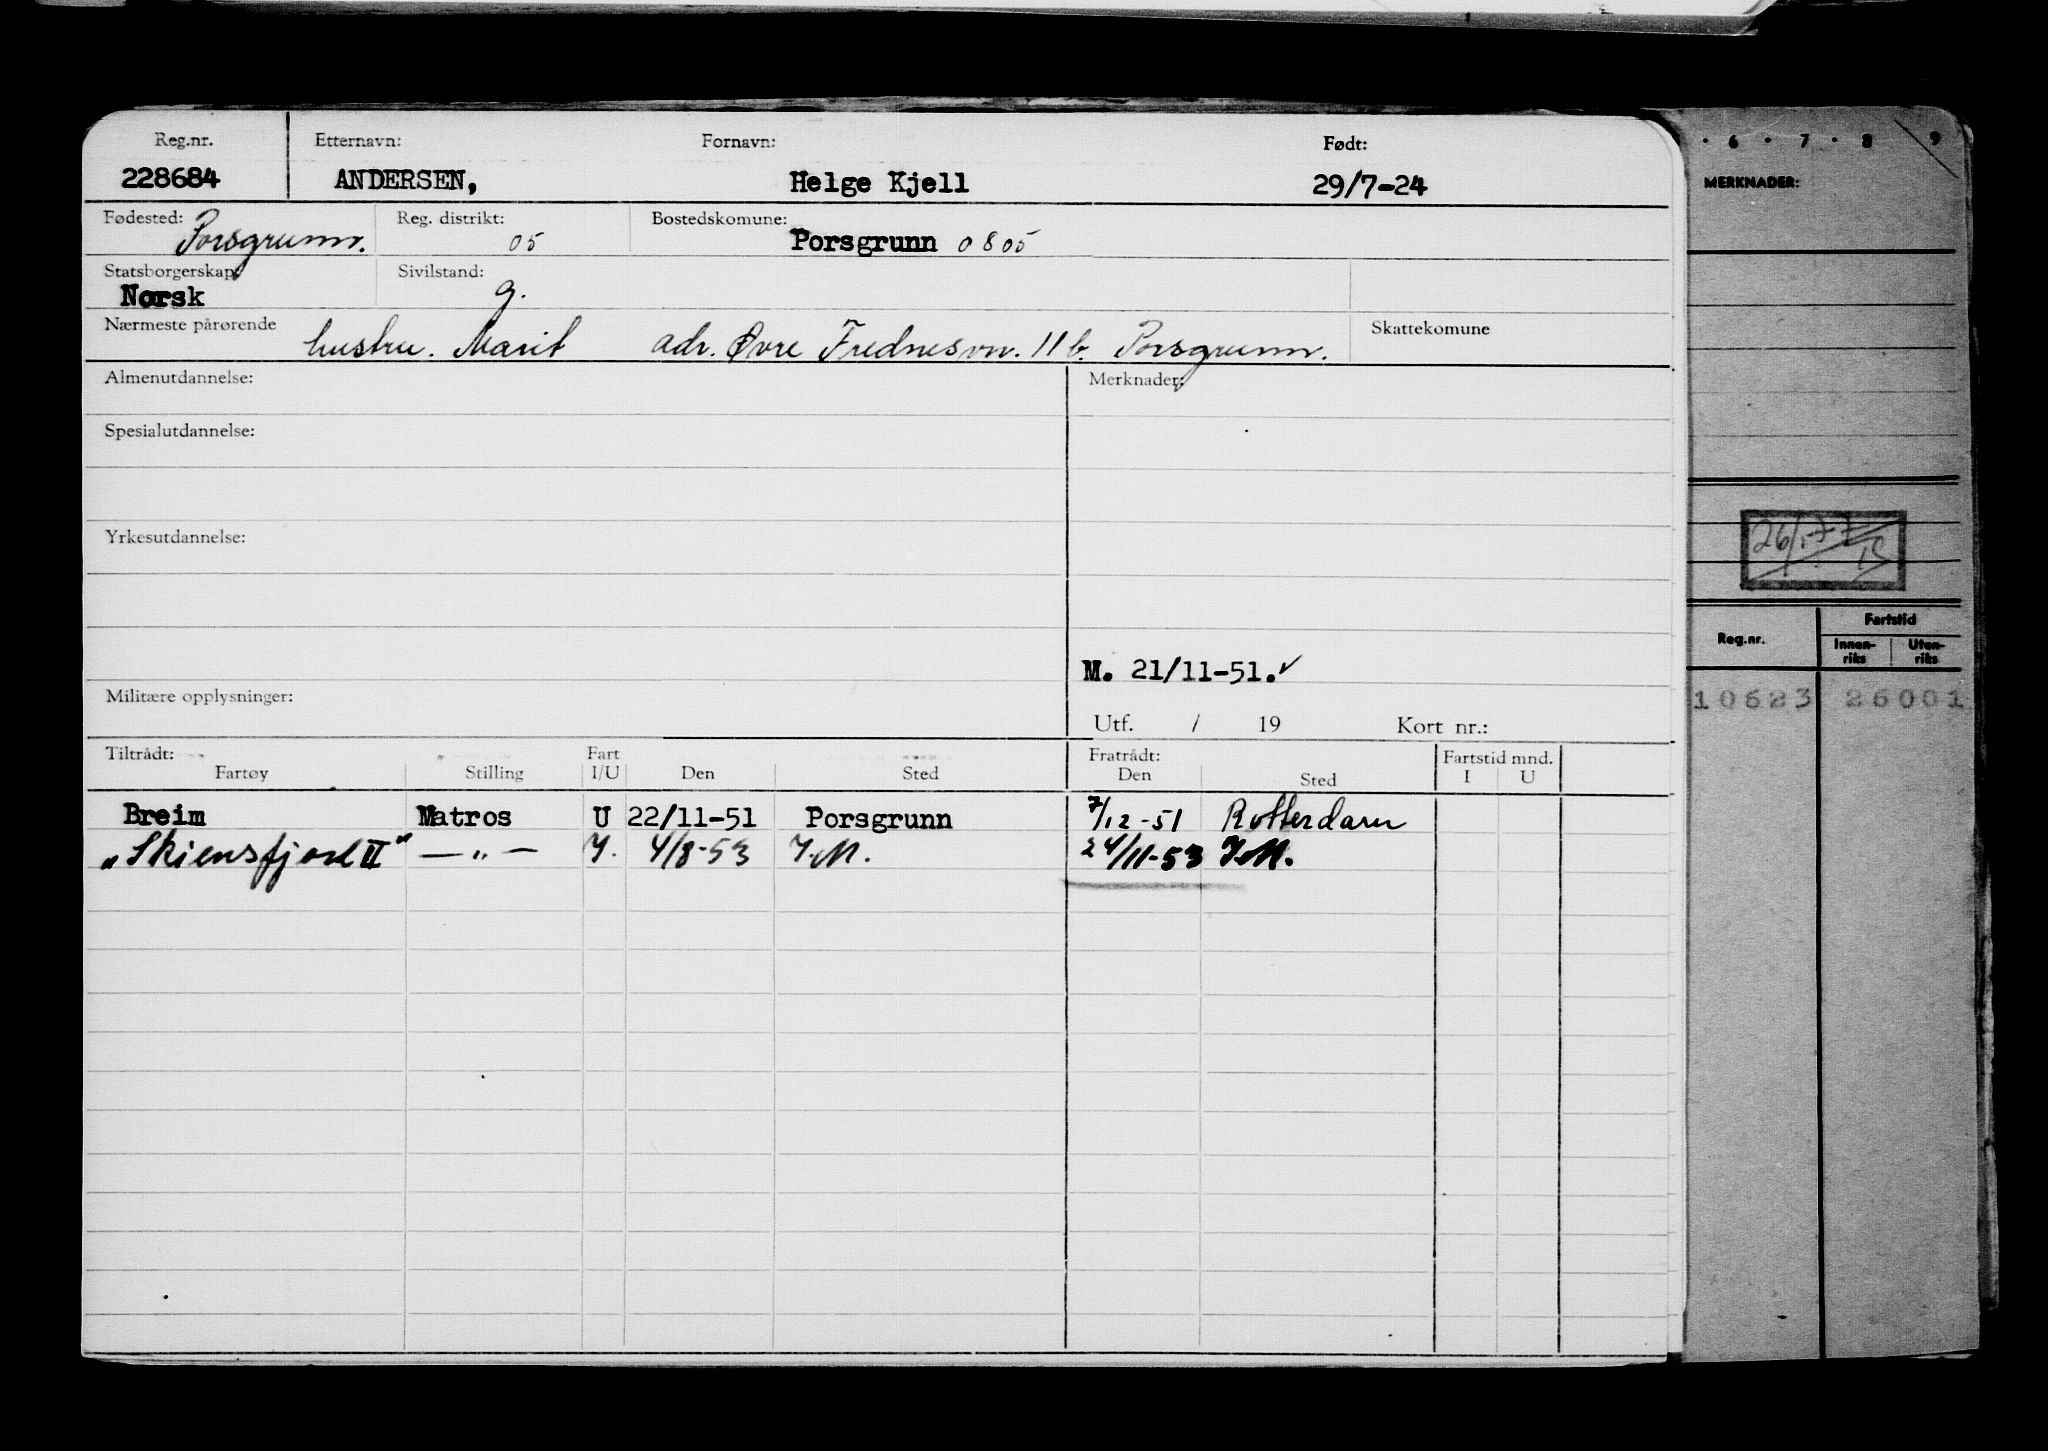 Reg.nr. Etternavn: Fornavn: Født:
228684 ANDERSEN, Helge Kjell 29/7-24
Fødested: Porsgrunn. Reg. distrikt: 05 Bostedskomune: Porsgrunn 0805
Statsborgerskap: Norsk Sivilstand: g.
Nærmeste pårørende hustru. Marit adr. Øvre Frednesvn. 11 b. Porsgrunn. Skattekomune
Almenutdannelse: Merknader:
Spesialutdannelse:
Yrkesutdannelse:
M. 21/11-51.✓
Militære opplysninger: Utf. / 19 Kort nr.:
Tiltrådt: Fart Fratrådt: Fartstid mnd.
Fartøy Stilling I/U Den Sted Den Sted I U
Breim Matros U 22/11-51 Porsgrunn 7/12-51 Rotterdam
„Skiensfjord II" — „ — 4/8-53 24/11-53
. 6 . 7 . 8 9
MERKNADER:
Reg.nr. Fartstid
Innen-riks Uten-riks
10623 26001